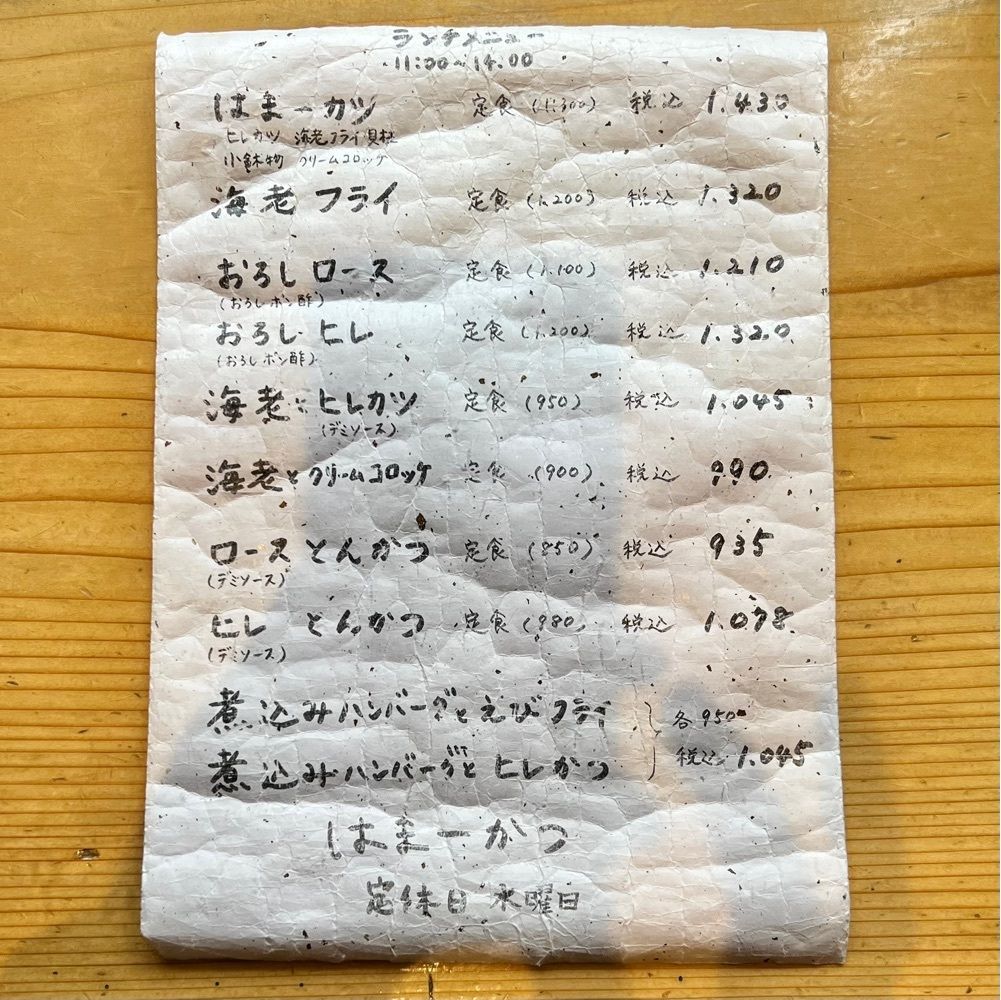 ランチメニュー
11:00~14.00
はまーカツ 定食 (1.300) 税込 1.430
ヒレカツ 海老フライ 貝柱
小鉢物 クリームコロッケ
海老フライ 定食 (1.200) 税込 1.320
おろしロース 定食 (1.100) 税込 1.210
(おろしポン酢)
おろしヒレ 定食 (1.200) 税込 1.320
(おろしポン酢)
海老とヒレカツ 定食 (950) 税込 1.045
(デミソース)
海老とクリームコロッケ 定食 (900) 税込 990
ロースとんかつ 定食 (850) 税込 935
(デミソース)
ヒレ とんかつ 定食 (980) 税込 1.078
(デミソース)
煮込みハンバーグとえびフライ 各950
煮込みハンバーグとヒレかつ 税込 1.045
はまーかつ
定休日 水曜日